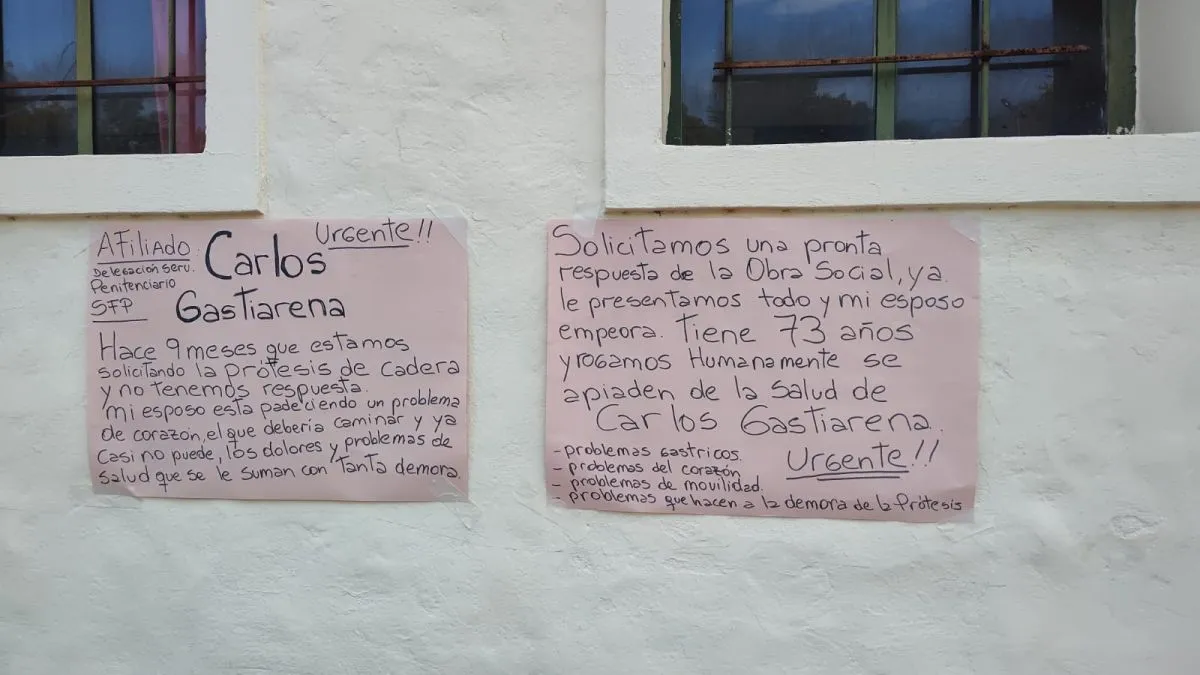 AFiliado
Delegación serv.
Penitenciario
SFP
Urgente!!
Carlos
Gastiarena
Hace 9 meses que estamos
solicitando la prótesis de cadera
y no tenemos respuesta.
mi esposo esta padeciendo un problema
de corazon, el que debería caminar y ya
casi no puede, los dolores y problemas de
salud que se le suman con Tanta demora.
Solicitamos una pronta
respuesta de la Obra Social, ya
le presentamos todo y mi esposo
empeora. Tiene 73 años
y rogamos Humanamente se
apiaden de la Salud de
Carlos Gastiarena.
- problemas gastricos.
- problemas del corazón
- problemas de movilidad.
- problemas que hacen a la demora de la Prótesis
Urgente!!